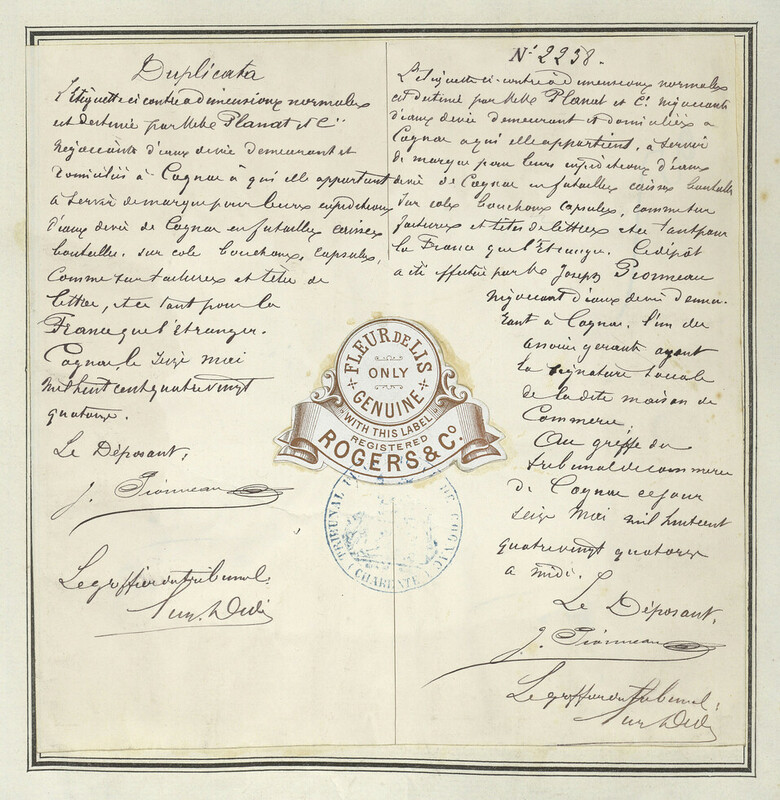 Duplicata
L'Etiquette ci contre à dimensions normales
est destinée par MM. Planat et Cie
négociants d'eaux devie demeurant et
domiciliés à Cognac à qui elle appartient
à servir de marque pour leurs expéditions
d'eaux devie de Cognac en futailles caisses
bouteilles, sur cols bouchons, capsules,
comme sur factures et tête de
lettres, et ce tant pour la
France que l'étranger.
Cognac, le seize mai
mil huit cent quatre vingt
quatorze.
Le Déposant,
J. Pionneau
Le greffier du tribunal.
N° 2238.
L'étiquette ci-contre à dimensions normales
est destinée par Planat et Cie négociants
d'eaux devie demeurant et domiciliés à
Cognac à qui elle appartient, à servir
de marque pour leurs expéditions d'eaux
devie de Cognac en futailles caisses bouteilles
sur cols bouchons capsules, comme sur
factures et têtes de lettres et ce tant pour
la France que l'Etranger. Ce dépôt
a été effectué par Mr Joseph Pionneau
négociant d'eaux devie demeu-
rant à Cognac, l'un des
associés gérants ayant
la signature sociale
de la dite maison de
Commerce,
Au greffe du
tribunal de commerce
de Cognac ce jour
seize Mai mil huit cent
quatre vingt quatorze
à midi.
Le Déposant,
J. Pionneau
Le greffier du tribunal.
FLEUR DE LIS
ONLY
GENUINE
WITH THIS LABEL
REGISTERED
ROGERS & Co
TRIBUNAL DE COGNAC
(CHARENTE)